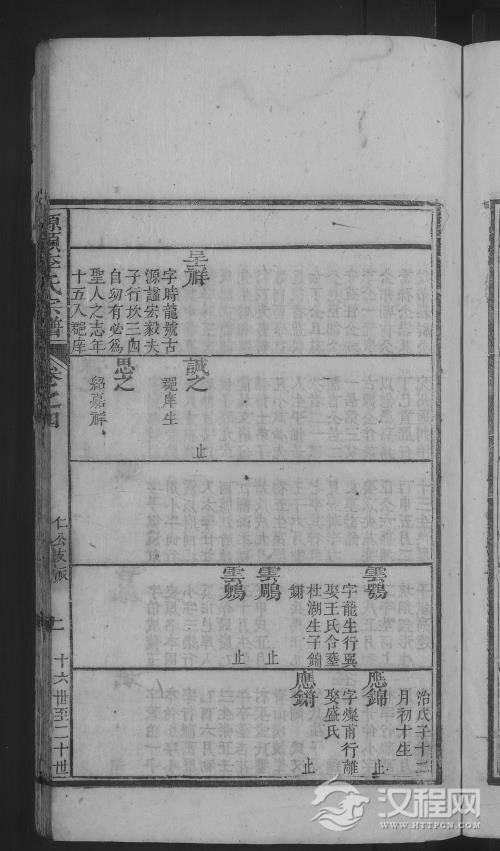 呈祥
字時龍號古
源謚宏毅夫
子行坎三四
自幼有必為
聖人之志年
十五入郡庠
誠之
郡庠生
止
思之
紹嘉祥
雲鶚
字龍生行巽
娶王氏合葬
杜潮生子錦
鏘
雲鵰
止
雲鶴
止
治戊子十二
月初十生
應錦
字燦甫行離
娶盛氏
止
應鏘
止
氏宗譜
卷之四
仁公支派
十六世至二十世
汉程网
WWW.HTTPCN.COM